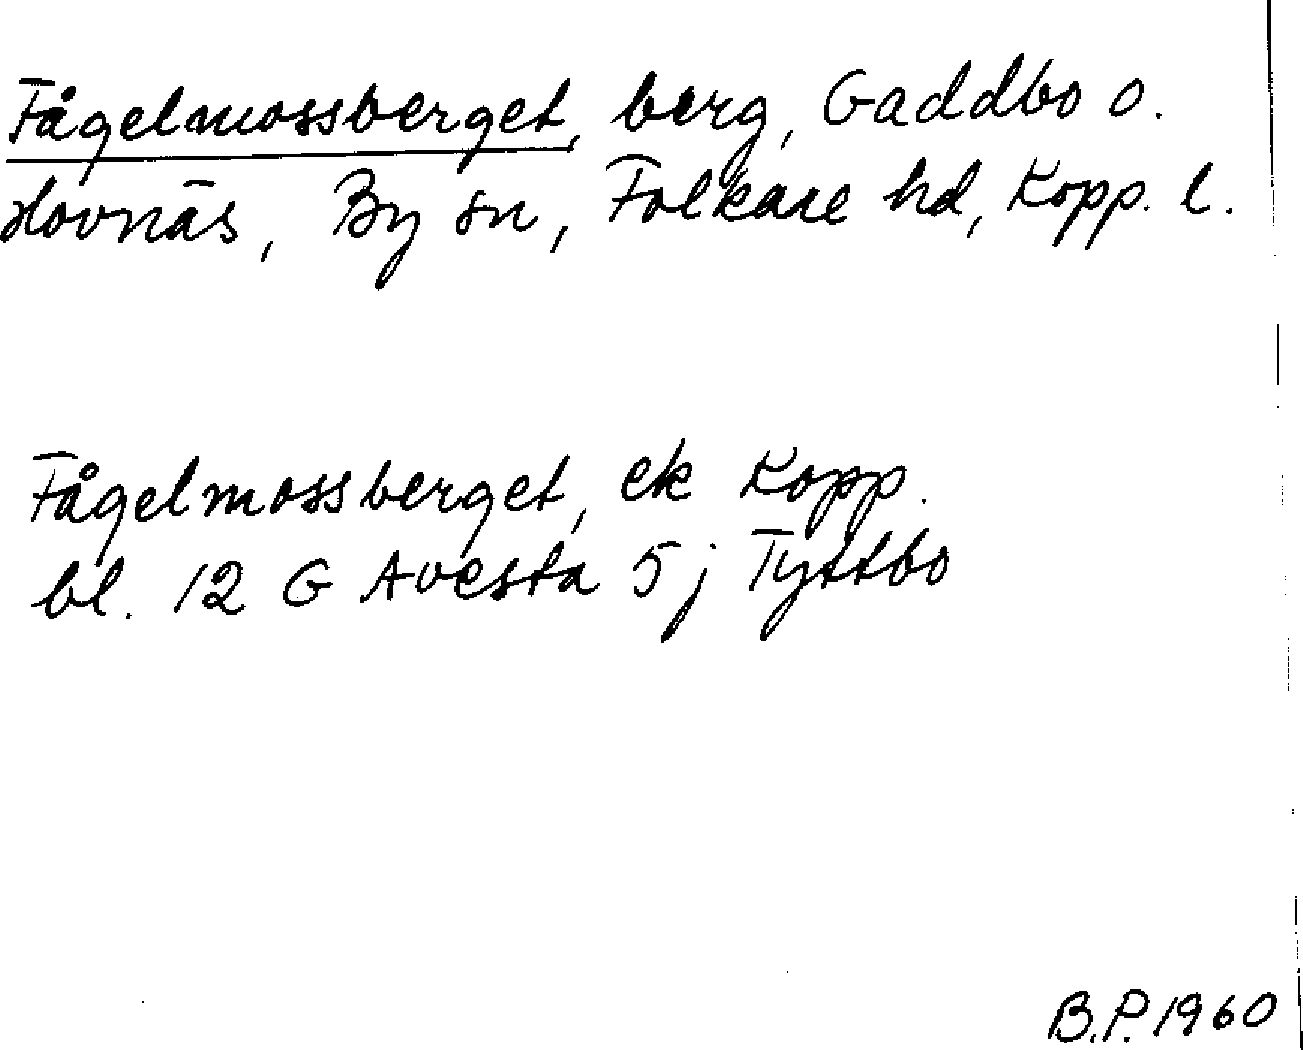 Fågelmossberget, berg, Gaddbo o.
Hovnäs, By sn, Folkare hd, Kopp. l.
Fågelmossberget, ek Kopp.
bl. 12 G Avesta 5 j Tyttbo
B.P. 1960